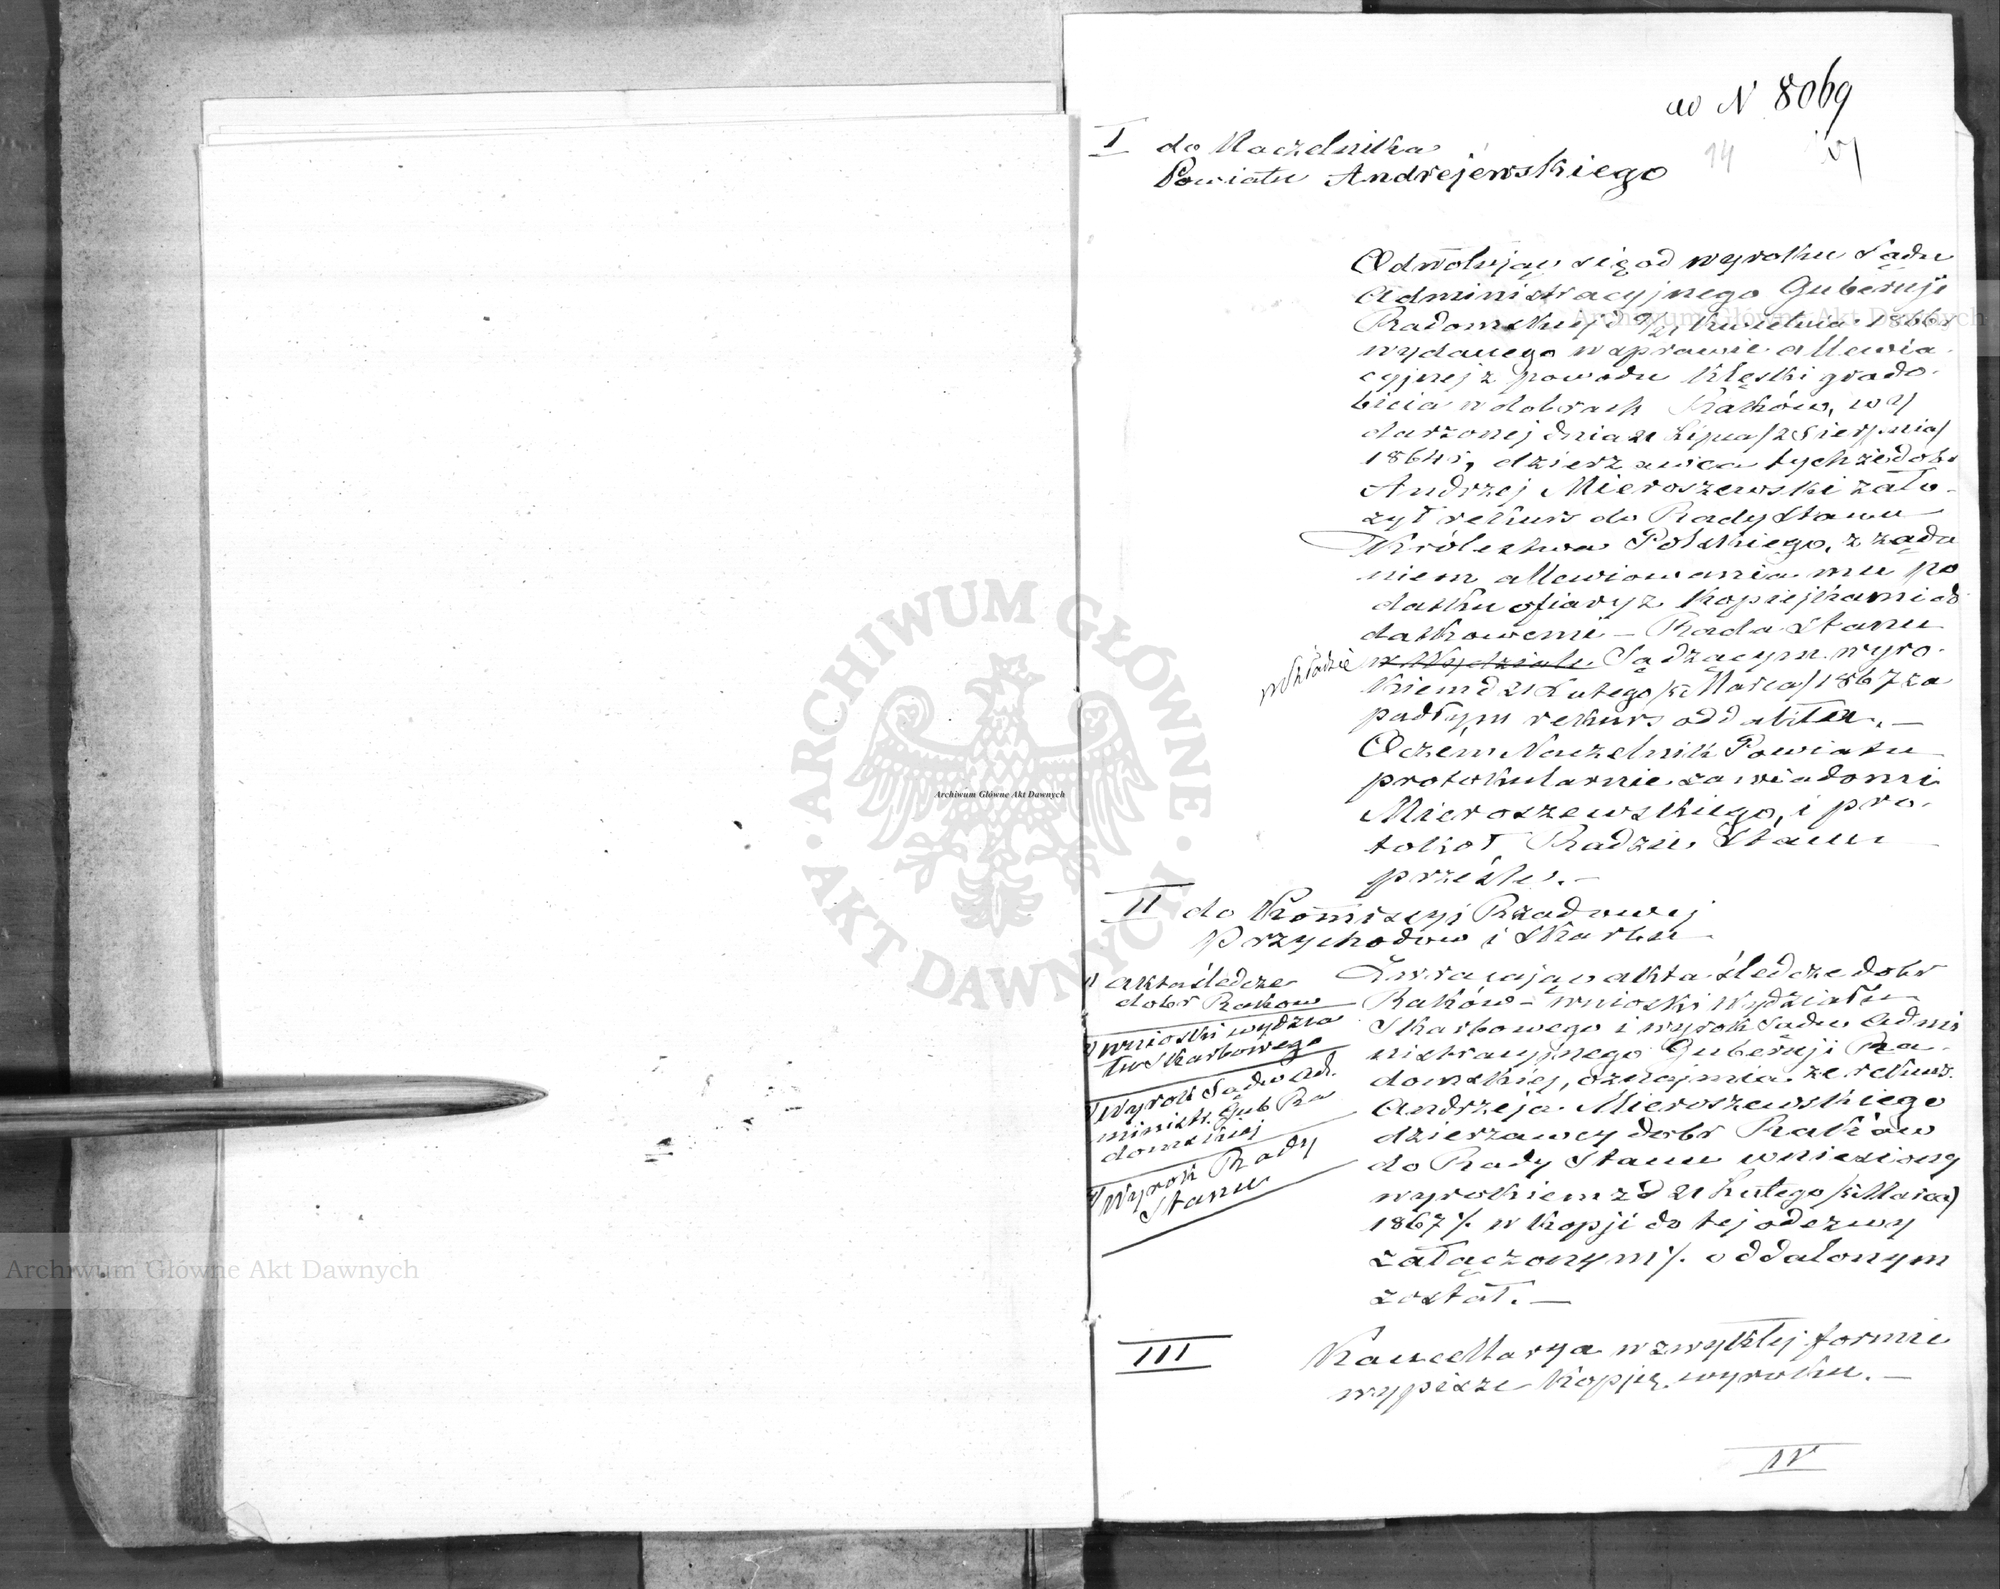 ad N 8069
14
I do Naczelnika
Powiatu Andrejewskiego
Odwołując się od wyroku Sądu
Administracyjnego Gubernji
Radomskiej d Kwietnia 1866 r
wydanego w sprawie allewia
cyjnej z powodu klęski grado-
bicia w dobrach Raków, wy
darzonej dnia 21 Lipca/2 Sierpnia/
1864 r, dzierzawca tychże dobr
Andrzej Mieroszewski zało-
żył rekurs do Rady Stanu
Królestwa Polskiego, z żąda
niem allewiowania mu po
datku ofiary z kopiejkami do
datkowemi – Rada Stanu
w Składzie w Wydziale Sądzącym wyro-
kiem d 21 Lutego/5 Marca/1867 za
padłym rekurs oddaliła. –
O czém Naczelnik Powiatu
protokularnie zawiadomi
Mieroszewskiego, i pro-
tokół Radzie Stanu
prześle. –
II do Kommissyi Rządowej
Przychodow i Skarbu
akta śledcze
dobr Rakow
wnioski wydzia
łu Skarbowego
Wyrok Sądu Ad.
ministr. Gub Ra
domskiej
Wyrok Rady
Stanu
Zwracając akta śledcze dobr
Raków – wnioski Wydziału
Skarbowego i wyrok Sądu Admi
nistracyjnego Gubernji Ra-
domskiej, oznajmia że rekurs
Andrzeja Mieroszewskiego
dzierzawcy dobr Raków
do Rady Stanu wniesiony
wyrokiem z d 21 Lutego/5 Marca)
1867 /. w kopji do tej odezwy
załączonym /. oddalonym
został. –
III Kancellarya w zwykłej formie
wypisze kopję wyroku. –
IV
ARCHIWUM GŁÓWNE AKT DAWNYCH
Archiwum Główne Akt Dawnych
Archiwum Główne Akt Dawnych
Archiwum Główne Akt Dawnych